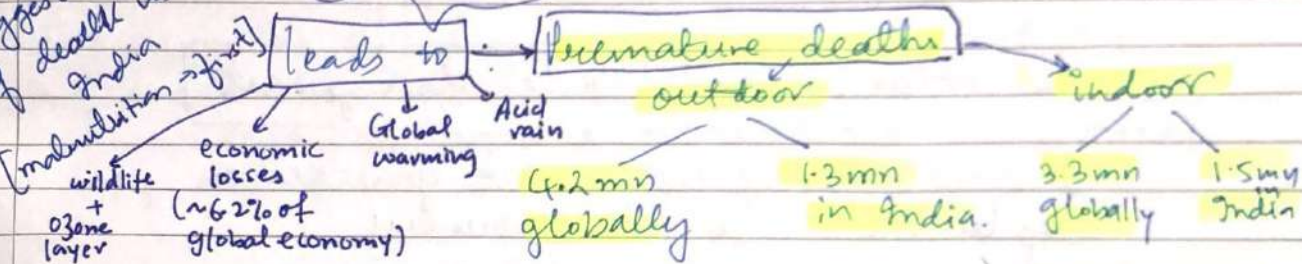 death
India
[malnutrition → first]
leads to → Premature deaths
outdoor
indoor
wildlife
+
ozone
layer
economic
losses
(~6.2% of
global economy)
Global
warming
Acid
rain
4.2 mn
globally
1.3 mn
in India.
3.3 mn
globally
1.5 mn
in
India